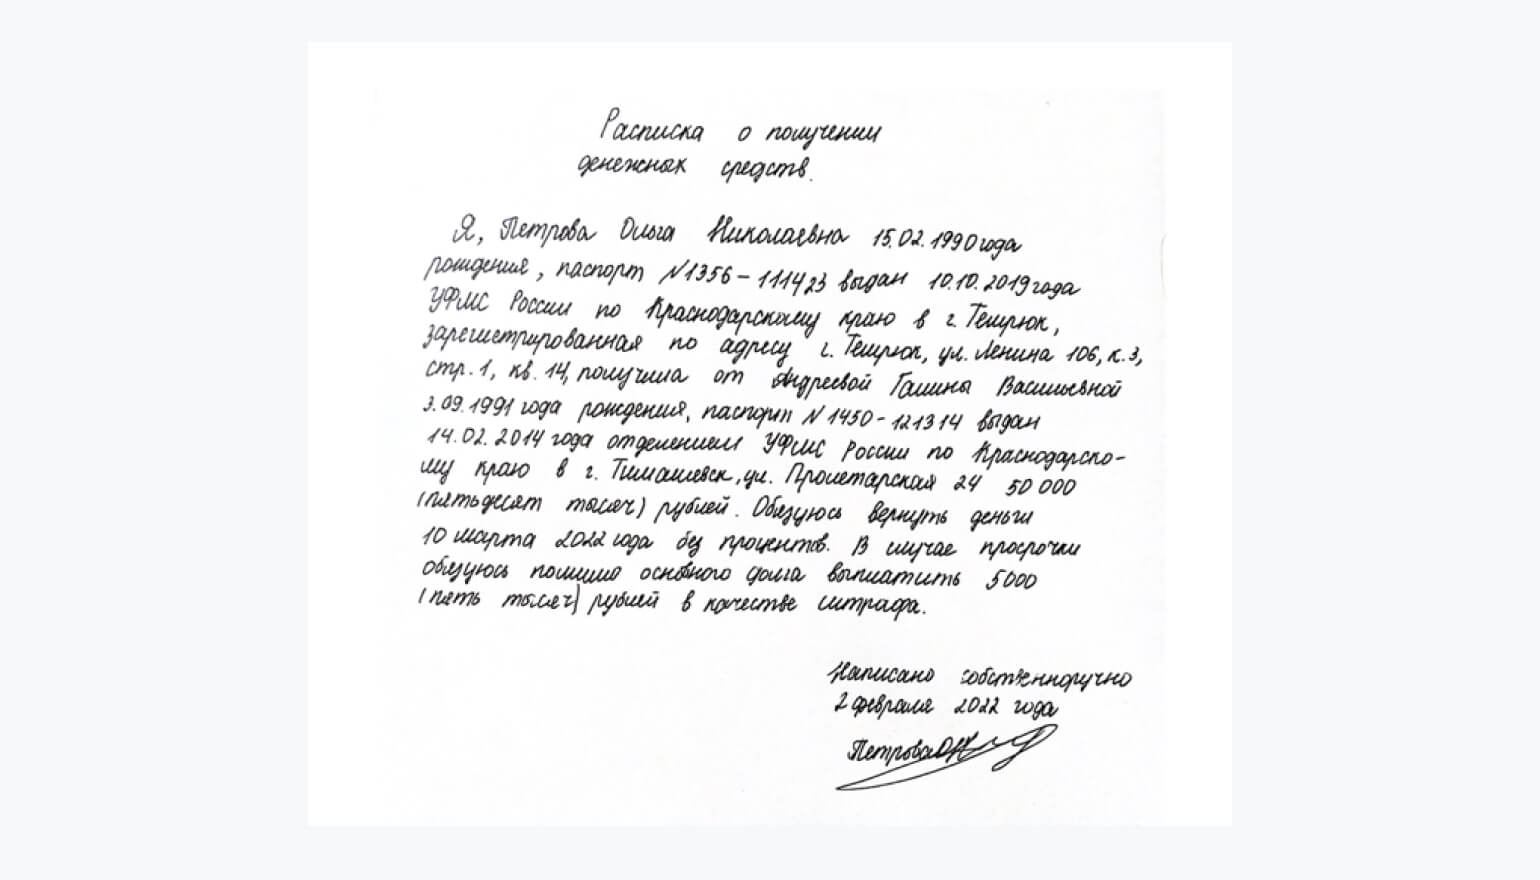 Расписка о получении
денежных средств.
Я, Петрова Ольга Николаевна 15.02.1990 года
рождения, паспорт №1356-111423 выдан 10.10.2019 года
УФМС России по Краснодарскому краю в г. Темрюк,
зарегистрированная по адресу г. Темрюк, ул. Ленина 106, к.3,
стр. 1, кв. 14, получила от Андреевой Галины Васильевной
3.09.1991 года рождения, паспорт №1450-121314 выдан
14.02.2014 года отделением УФМС России по Краснодарско-
му краю в г. Тимашевск, ул. Пролетарская 24 50 000
(пятьдесят тысяч) рублей. Обязуюсь вернуть деньги
10 марта 2022 года без процентов. В случае просрочки
обязуюсь помимо основного долга выплатить 5000
(пять тысяч) рублей в качестве штрафа.
Написано собственноручно
2 февраля 2022 года
Петрова ОН